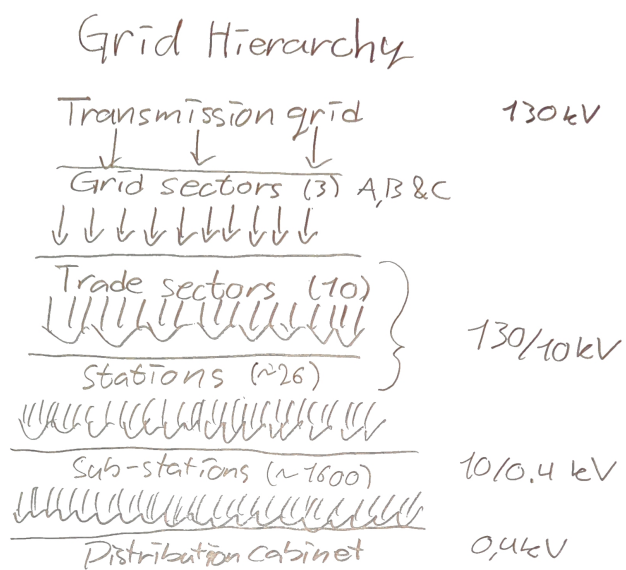 Grid Hierarchy
Transmission grid 130 kV
Grid sectors (3) A,B & C
Trade sectors (10)
130/10 kV
Stations (~26)
Sub-stations (~1600) 10/0.4 kV
Distribution cabinet 0,4 kV